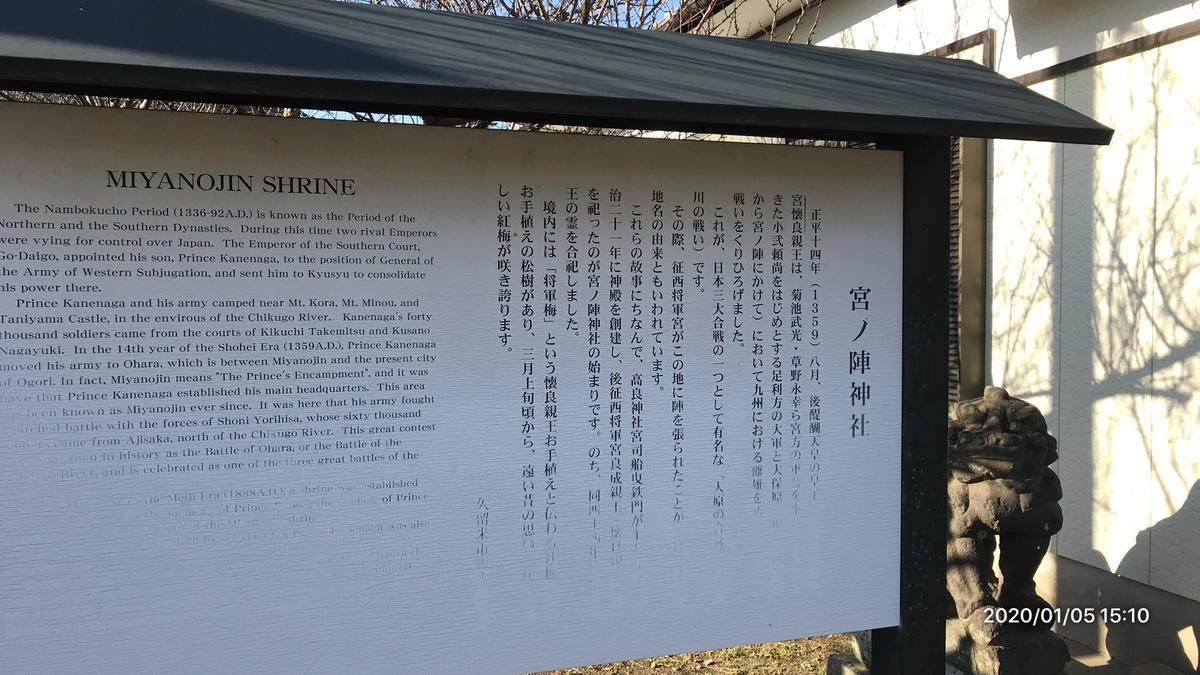 MIYANOJIN SHRINE
The Nambokucho Period (1336-92A.D.) is known as the Period of the
Northern and the Southern Dynasties. During this time two rival Emperors
were vying for control over Japan. The Emperor of the Southern Court,
Go-Daigo, appointed his son, Prince Kanenaga, to the position of General of
the Army of Western Subjugation, and sent him to Kyusyu to consolidate
his power there.
Prince Kanenaga and his army camped near Mt. Kora, Mt. Minou, and
Taniyama Castle, in the envirous of the Chikugo River. Kanenaga's forty
thousand soldiers came from the courts of Kikuchi Takemitsu and Kusano
Nagayuki. In the 14th year of the Shohei Era (1359A.D.), Prince Kanenaga
moved his army to Ohara, which is between Miyanojin and the present city
of Ogori. In fact, Miyanojin means "The Prince's Encampment", and it was
that Prince Kanenaga established his main headquarters. This area
been known as Miyanojin ever since. It was here that his army fought
pitched battle with the forces of Shoni Yorihisa, whose sixty thousand
came from Ajisaka, north of the Chikugo River. This great contest
in history as the Battle of Ohara, or the Battle of the
River, and is celebrated as one of the three great battles of the
the Meiji Era (1888A.D.), a shrine was established
of Prince
shrine
was also
宮ノ陣神社
正平十四年(1359)八月、後醍醐天皇の皇子
宮懐良親王は、菊池武光・草野永幸ら宮方の軍
きた小弐頼尚をはじめとする足利方の大軍と大保原
から宮ノ陣にかけて)において九州における雌雄を
戦いをくりひろげました。
これが、日本三大合戦の一つとして有名な「大原の合戦
川の戦い)です。
その際、征西将軍宮がこの地に陣を張られたことが
地名の由来ともいわれています。
これらの故事にちなんで、高良神社宮司船曳鉄門が
治二十一年に神殿を創建し、後征西将軍宮良成親王
を祀ったのが宮ノ陣神社の始まりです。のち、同四十
王の霊を合祀しました。
境内には「将軍梅」という懐良親王お手植えと伝わる
お手植えの松樹があり、三月上旬頃から、遠い昔の思い
しい紅梅が咲き誇ります。
久留米市
2020/01/05 15:10